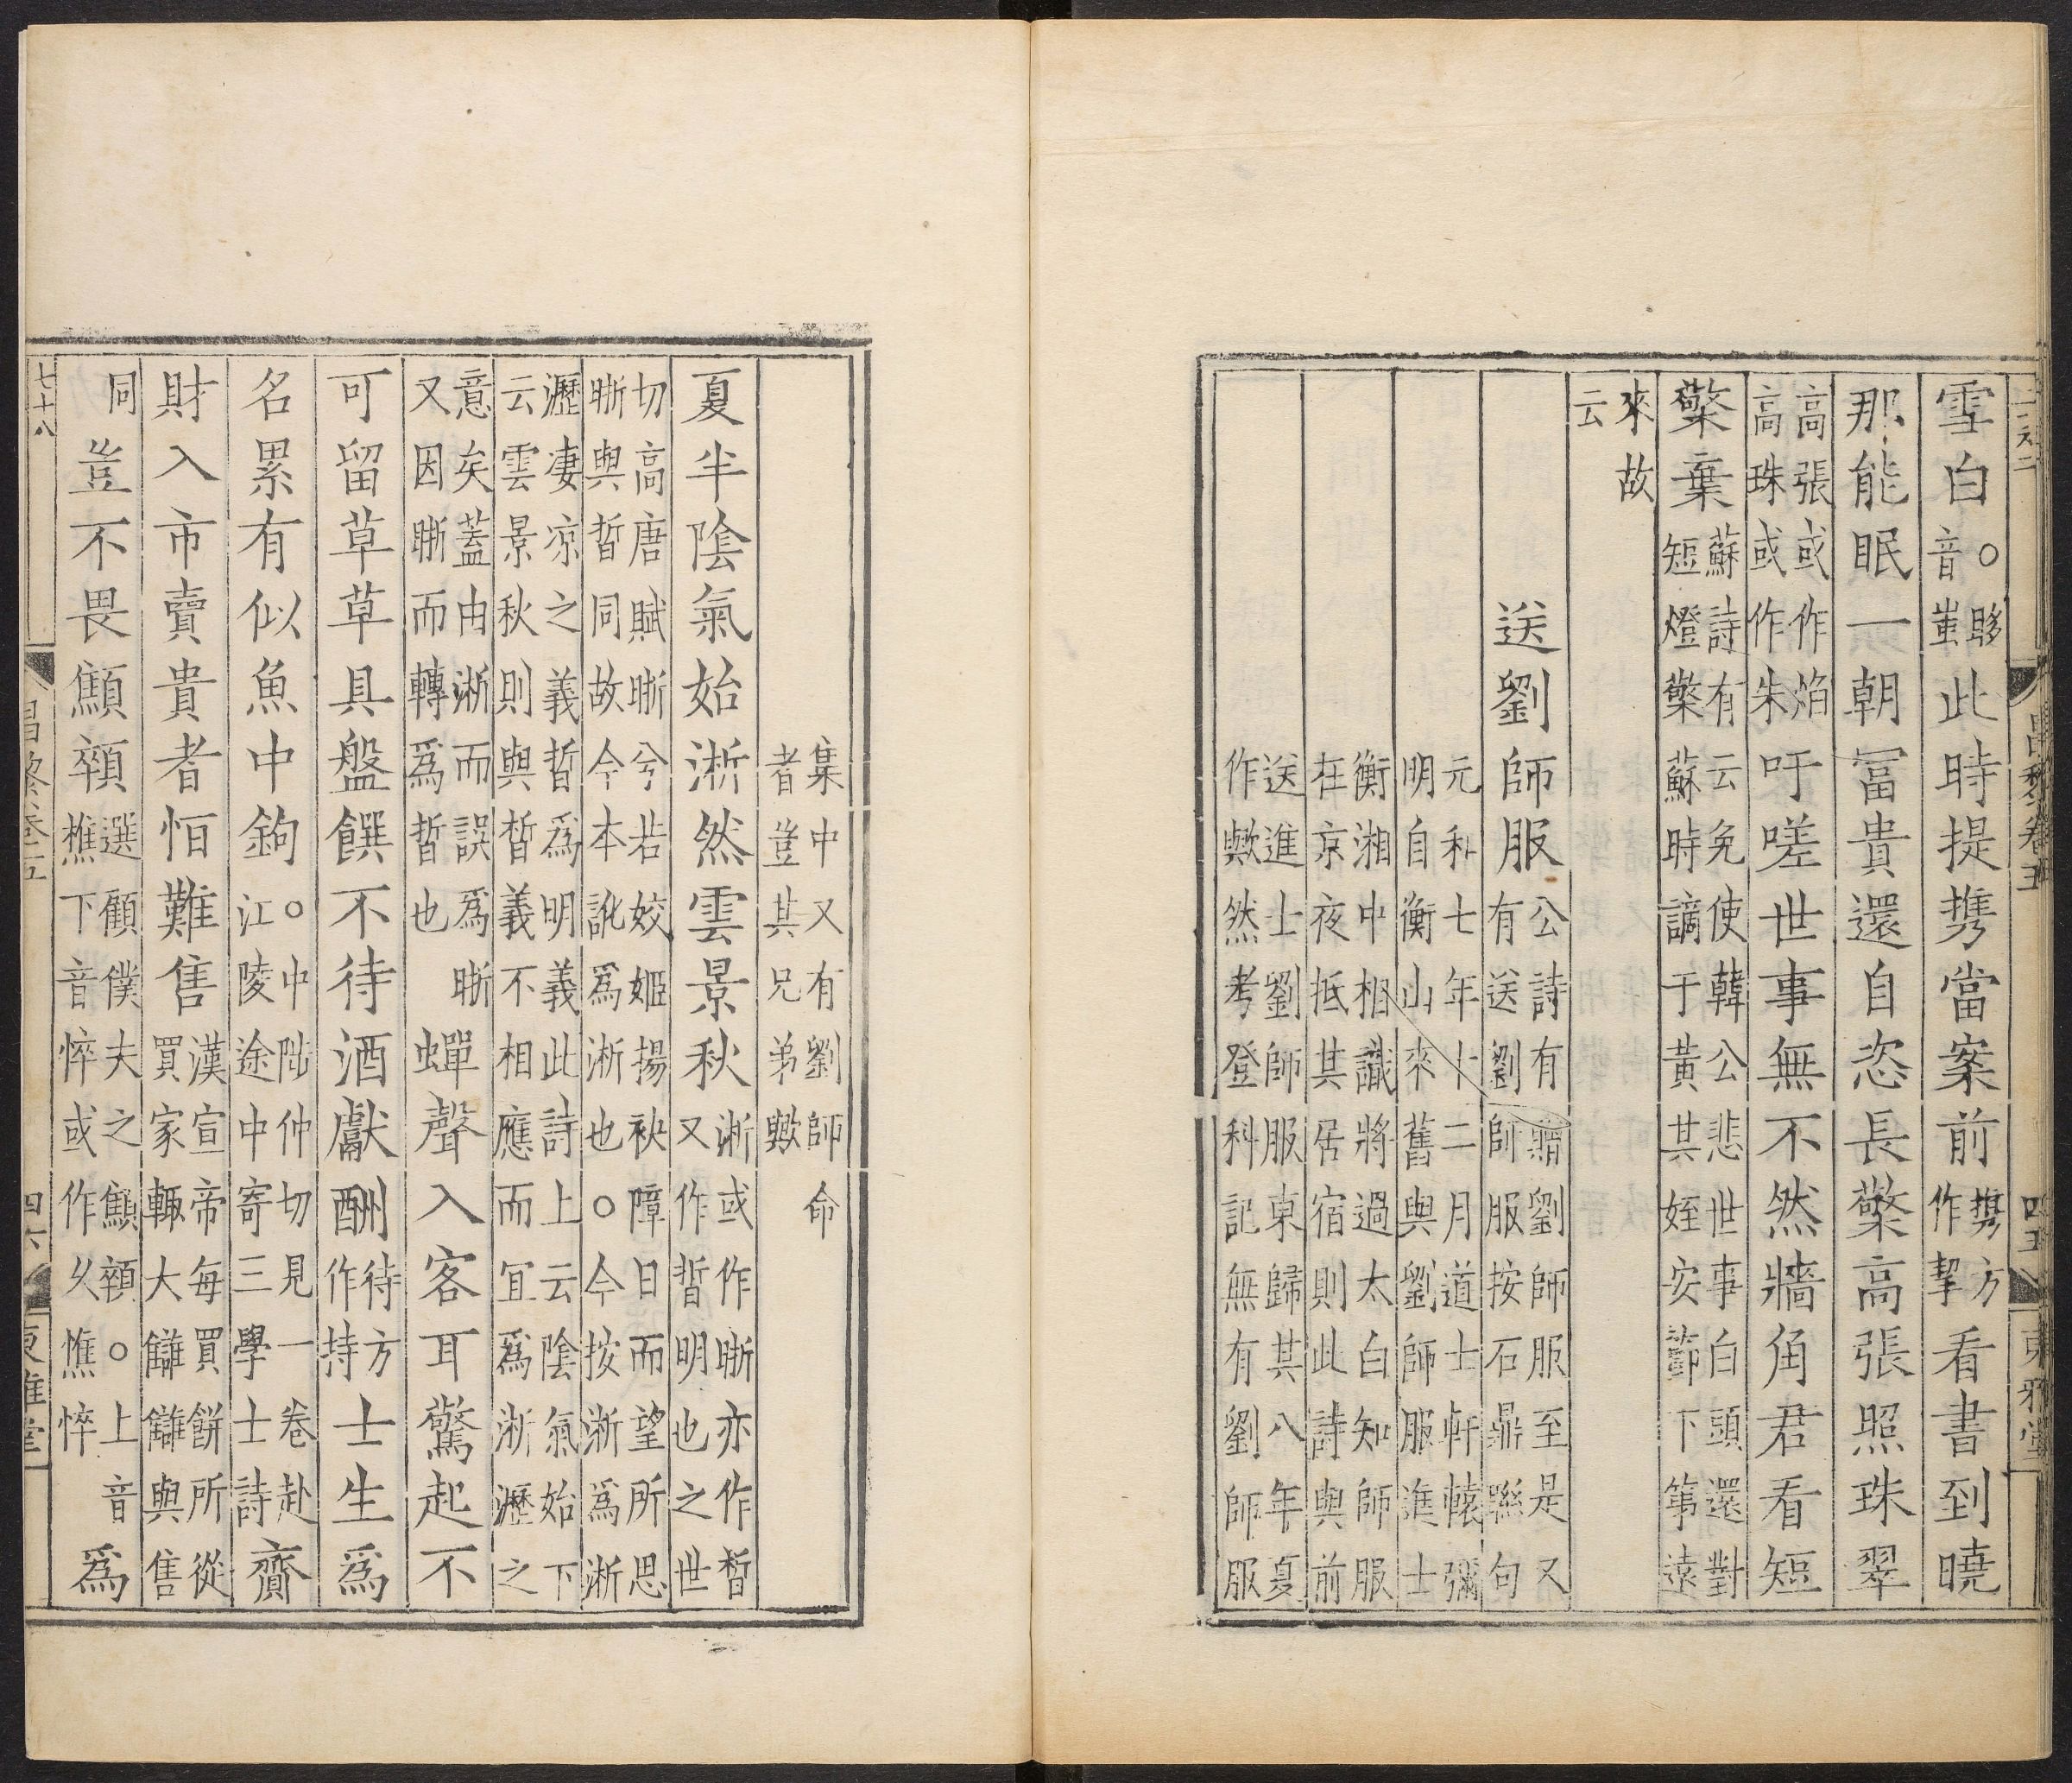 雪白○眵音蚩此時提携當案前携方作挈看書到曉
那能眠一朝冨貴還自恣長檠高張照珠翠
高張或作焰高珠或作朱吁嗟世事無不然牆角君看短
檠棄蘇詩有云免使韓公悲世事白頭還對短燈檠蘇時謫于黃其姪安節下第遠
來故云
送劉師服公詩有贈劉師服至是又有送劉師服按石鼎聯句
元和七年十二月道士軒轅彌明自衡山來舊與劉師服進士
衡湘中相識將過太白知師服在京夜抵其居宿則此詩與前
送進士劉師服東歸其八年夏作歟然考登科記無有劉師服
集中又有劉師命者豈其兄弟歟
夏半陰氣始淅然雲景秋淅或作晣亦作晳又作晢明也之世
切高唐賦晣兮若姣姬揚袂障日而望所思晣與晢同故今本訛爲淅也○今按淅爲淅
瀝凄凉之義晢爲明義此詩上云陰氣始下云雲景秋則與晳義不相應而冝爲淅瀝之
意矣蓋由淅而誤爲晣又因晣而轉爲晢也蟬聲入客耳驚起不
可留草草具盤饌不待酒獻酬待方作持士生爲
名累有似魚中鉤○中陟仲切見一卷赴江陵途中寄三學士詩齎
財入市賣貴者恒難售漢宣帝每買餅所從買家輒大讎讎與售
同豈不畏顦顇選顧僕夫之顦顇○上音樵下音悴或作乆憔悴爲
昌黎卷五
四五
東雅堂
七十八
昌黎卷五
四六
東雅堂